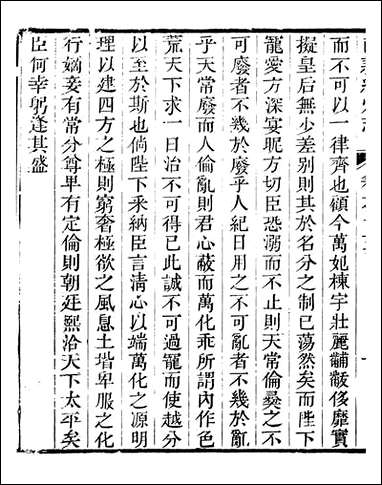 而不可以一律齊也頟今萬妃棟宇壯麗黼黻侈靡實
擬皇后無少差别則其於名分之制已蕩然矣而陛下
寵愛方深宴昵方切臣恐溺而不止則天常倫彜之不
可廢者不幾於廢乎人紀日用之不可亂者不幾於亂
乎天常廢而人倫亂則君心蔽而萬化乖所謂内作色
荒天下求一日治不可得已此誠不可過寵而使越分
以至於斯也倘陛下采納臣言淸心以端萬化之源明
理以建四方之極則窮奢極欲之風息土堦卑服之化
行嫡妾有常分尊卑有定倫則朝廷熙洽天下太平矣
臣何幸躬逢其盛